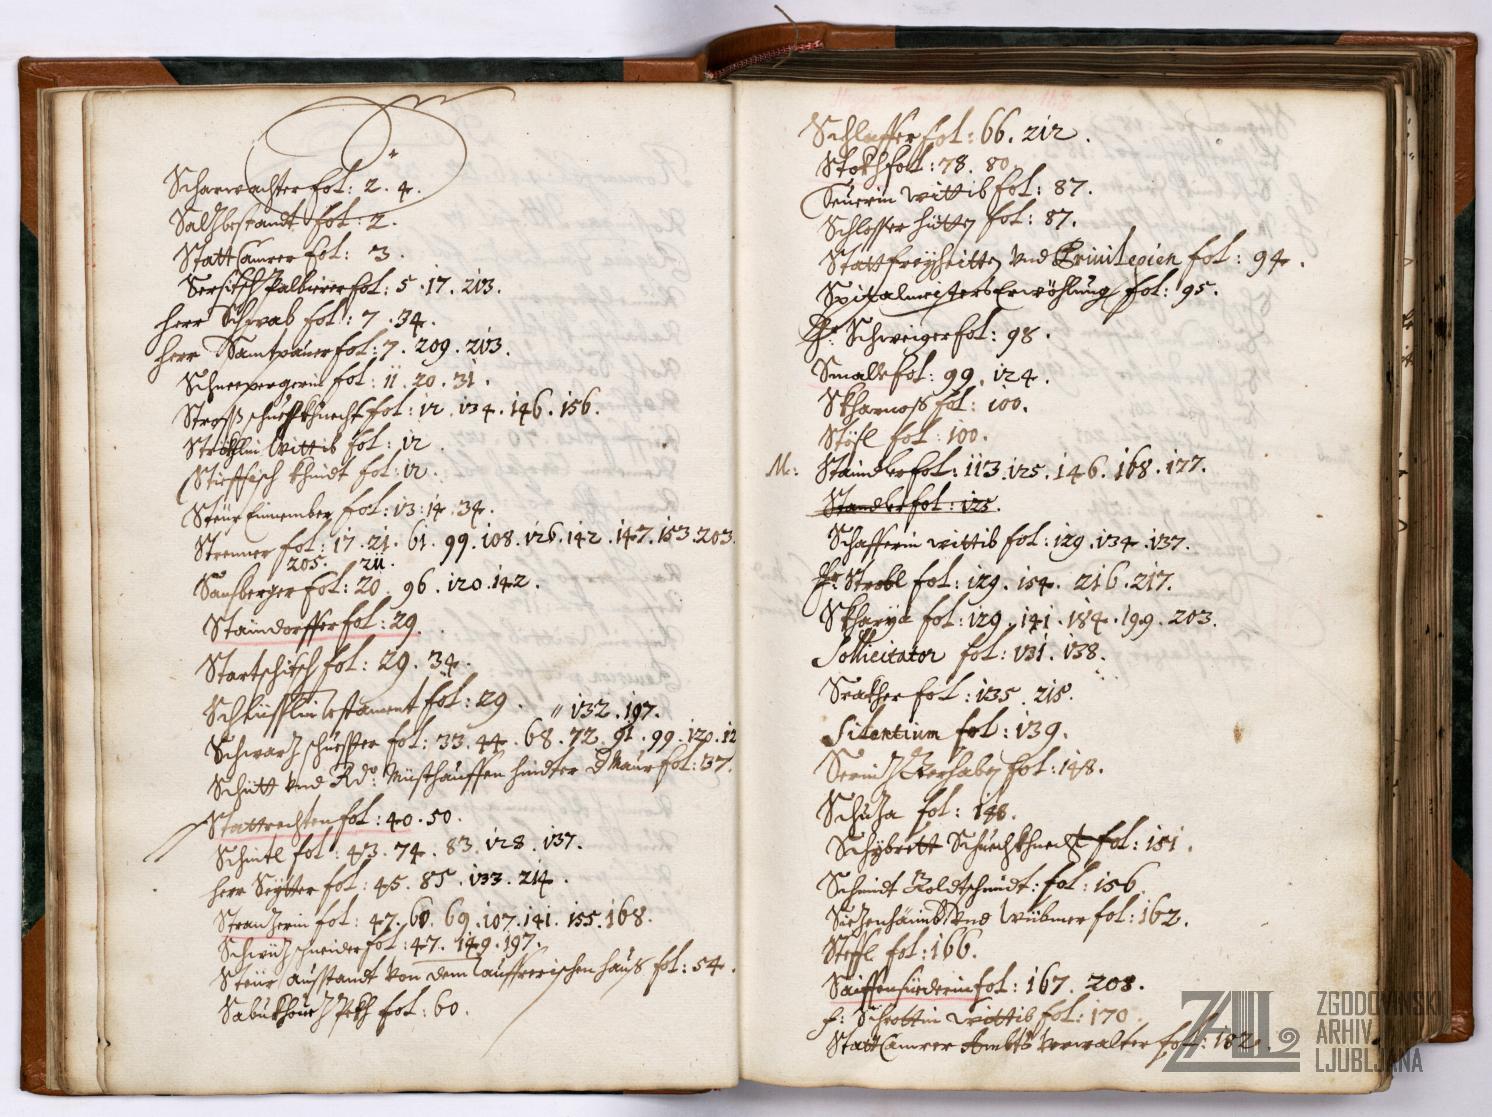 Scharwachter fol: 2. 4.
Saltzbestandt fol: 2.
Statt Camrer fol: 3.
Sersitsch Palbierer fol: 5. 17. 213.
Herr Schwab fol: 7. 34.
Herr Samtpauer fol: 7. 209. 213.
Schneepergerin fol: 11. 20. 31.
fol: 12. 134. 146. 156.
Wittib fol: 12.
khindt fol: 12.
Steür Einnember fol: 13. 14. 34.
Strenner fol: 17. 21. 61. 99. 108. 126. 142. 147. 153. 203.
205. 211.
fol: 20. 96. 120. 142.
Staindorffer fol: 29.
Startschitsch fol: 29. 34.
Testament fol: 29.
" 132. 197.
Schwartz fol: 33. 44. 68. 72. 91. 99. 120. 12
Schütt vnd Müsthauffen hindter d Maur fol: 37.
Stattrechten fol: 40. 50.
Schintl fol: 43. 74. 83. 128. 137.
Herr Seÿtter fol: 45. 85. 133. 214.
Stranzerin fol: 47. 60. 69. 107. 141. 155. 168.
schneider fol: 47. 149. 197.
Steür ausstandt von dem Lauffrerischen hauß fol: 54.
fol: 60.
Schlaffer fol: 66. 212.
Stokh fol: 78. 80.
wittib fol: 87.
Schlosser hütten fol: 87.
Stattfreÿheitten vnd Privilegien fol: 94.
Spitalmeisters Erwöhlung fol: 95.
Hr: Schweiger fol: 98.
Smalk fol: 99. 124.
Skharnoss fol: 100.
Stösl fol: 100.
M: fol: 113. 125. 146. 168. 177.
fol: 125.
Schafferin wittib fol: 129. 134. 137.
Hr: Strobl fol: 129. 154. 216. 217.
Skharya fol: 129. 141. 184. 199. 203.
Sollicitator fol: 131. 138.
Srakher fol: 135. 215.
Silentium fol: 139.
Gerhaben fol: 148.
Schuza fol: 148.
Schuechkhnecht fol: 151.
Schmidt Goldtschmidt: fol: 156.
vnd fol: 162.
Steffl fol: 166.
Saiffensiederin fol: 167. 208.
F: Schrottin wittib fol: 170.
Statt Camrer Ambts Verwalter fol: 182.
ZAL
ZGODOVINSKI
ARHIV
LJUBLJANA